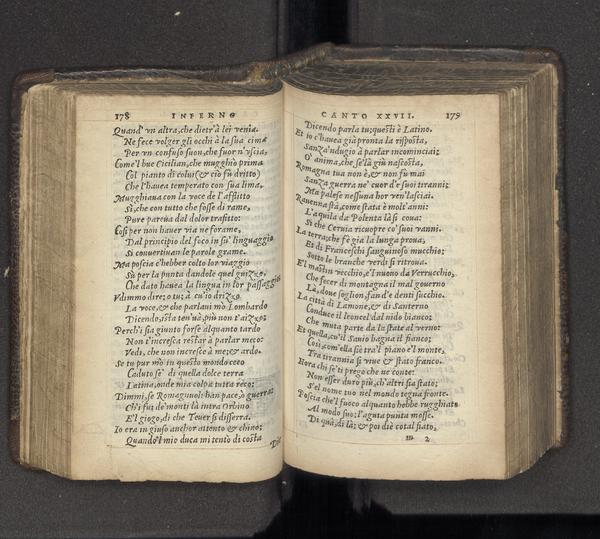 178 INFERNO
Quand' vn altra, che dietr'à lei venia.
Ne fece volger gli occhi à la sua cima
Per vn confuso suon, che fuor n'vscia,
Come'l bue Cicilian, che mugghiò prima
Col pianto di colui (& ciò fu dritto)
Che l'hauea temperato con sua lima,
Mugghiaua con la voce de l'afflitto
Si, che con tutto che fosse di rame,
Pure pareua dal dolor trafitto:
Cosi per non hauer via ne forame,
Dal principio del foco in su' linguaggio
Si conuertiuan le parole grame.
Ma poscia c'hebber colto lor viaggio
Sù per la punta dandole quel guizzo,
Che dato hauea la lingua in lor passaggio
Vdimmo dire; o tu; à cu'io drizzo
La voce, & che parlaui mo Lombardo
Dicendo, issa ten'uà, più non t'aizzo:
Perch'i sia giunto forse alquanto tardo
Non t'incresca restar à parlar meco:
Vedi, che non incresce à me; & ardo.
Se tu pur mò in questo mondo ceco
Caduto se' di quella dolce terra
Latina, onde mia colpa tutta reco;
Dimmi, se Romagnuoli han pace, o guerra:
Ch'i fui de' monti là intra Orbino
E'l giogo, di che Teuer si disserra.
Io era in giuso anchor attento & chino;
Quando'l mio duca mi tentò di costa
CANTO XXVII. 179
Dicendo parla tu; questi è Latino.
Et io c'hauea già pronta la risposta,
Sanza'ndugio à parlar incominciai;
O' anima, che se' là giù nascosta,
Romagna tua non è, & non fu mai
Sanza guerra ne' cuor d'e suoi tiranni;
Ma palese nessuna hor ven' lasciai.
Rauenna stà, come stata è molt'anni:
L'aquila da Polenta là si coua:
Sì che Ceruia ricuopre co' suoi vanni.
La terra; che fè già la lunga proua,
Et di Franceschi sanguinoso mucchio;
Sotto le branche verdi si ritroua.
E'l mastin vecchio, e'l nuouo da Verrucchio,
Che fecer di montagna il mal gouerno
Là, doue soglion, fan d'e denti succhio.
La città di Lamone, & di Santerno
Conduce il leoncel dal nido bianco;
Che muta parte da la state al verno:
Et quella, cu'il Sauio bagna il fianco;
Così, com'ella siè tra'l piano e'l monte,
Tra tirannia si viue & stato franco.
Hora chi se' ti prego che ne conte:
Non esser duro più, ch'altri sia stato;
S'el nome tuo nel mondo tegna fronte.
Poscia che'l fuoco alquanto hebbe rugghiato
Al modo suo; l'aguta punta mosse
Di quà, di là; & poi diè cotal fiato,
m 2